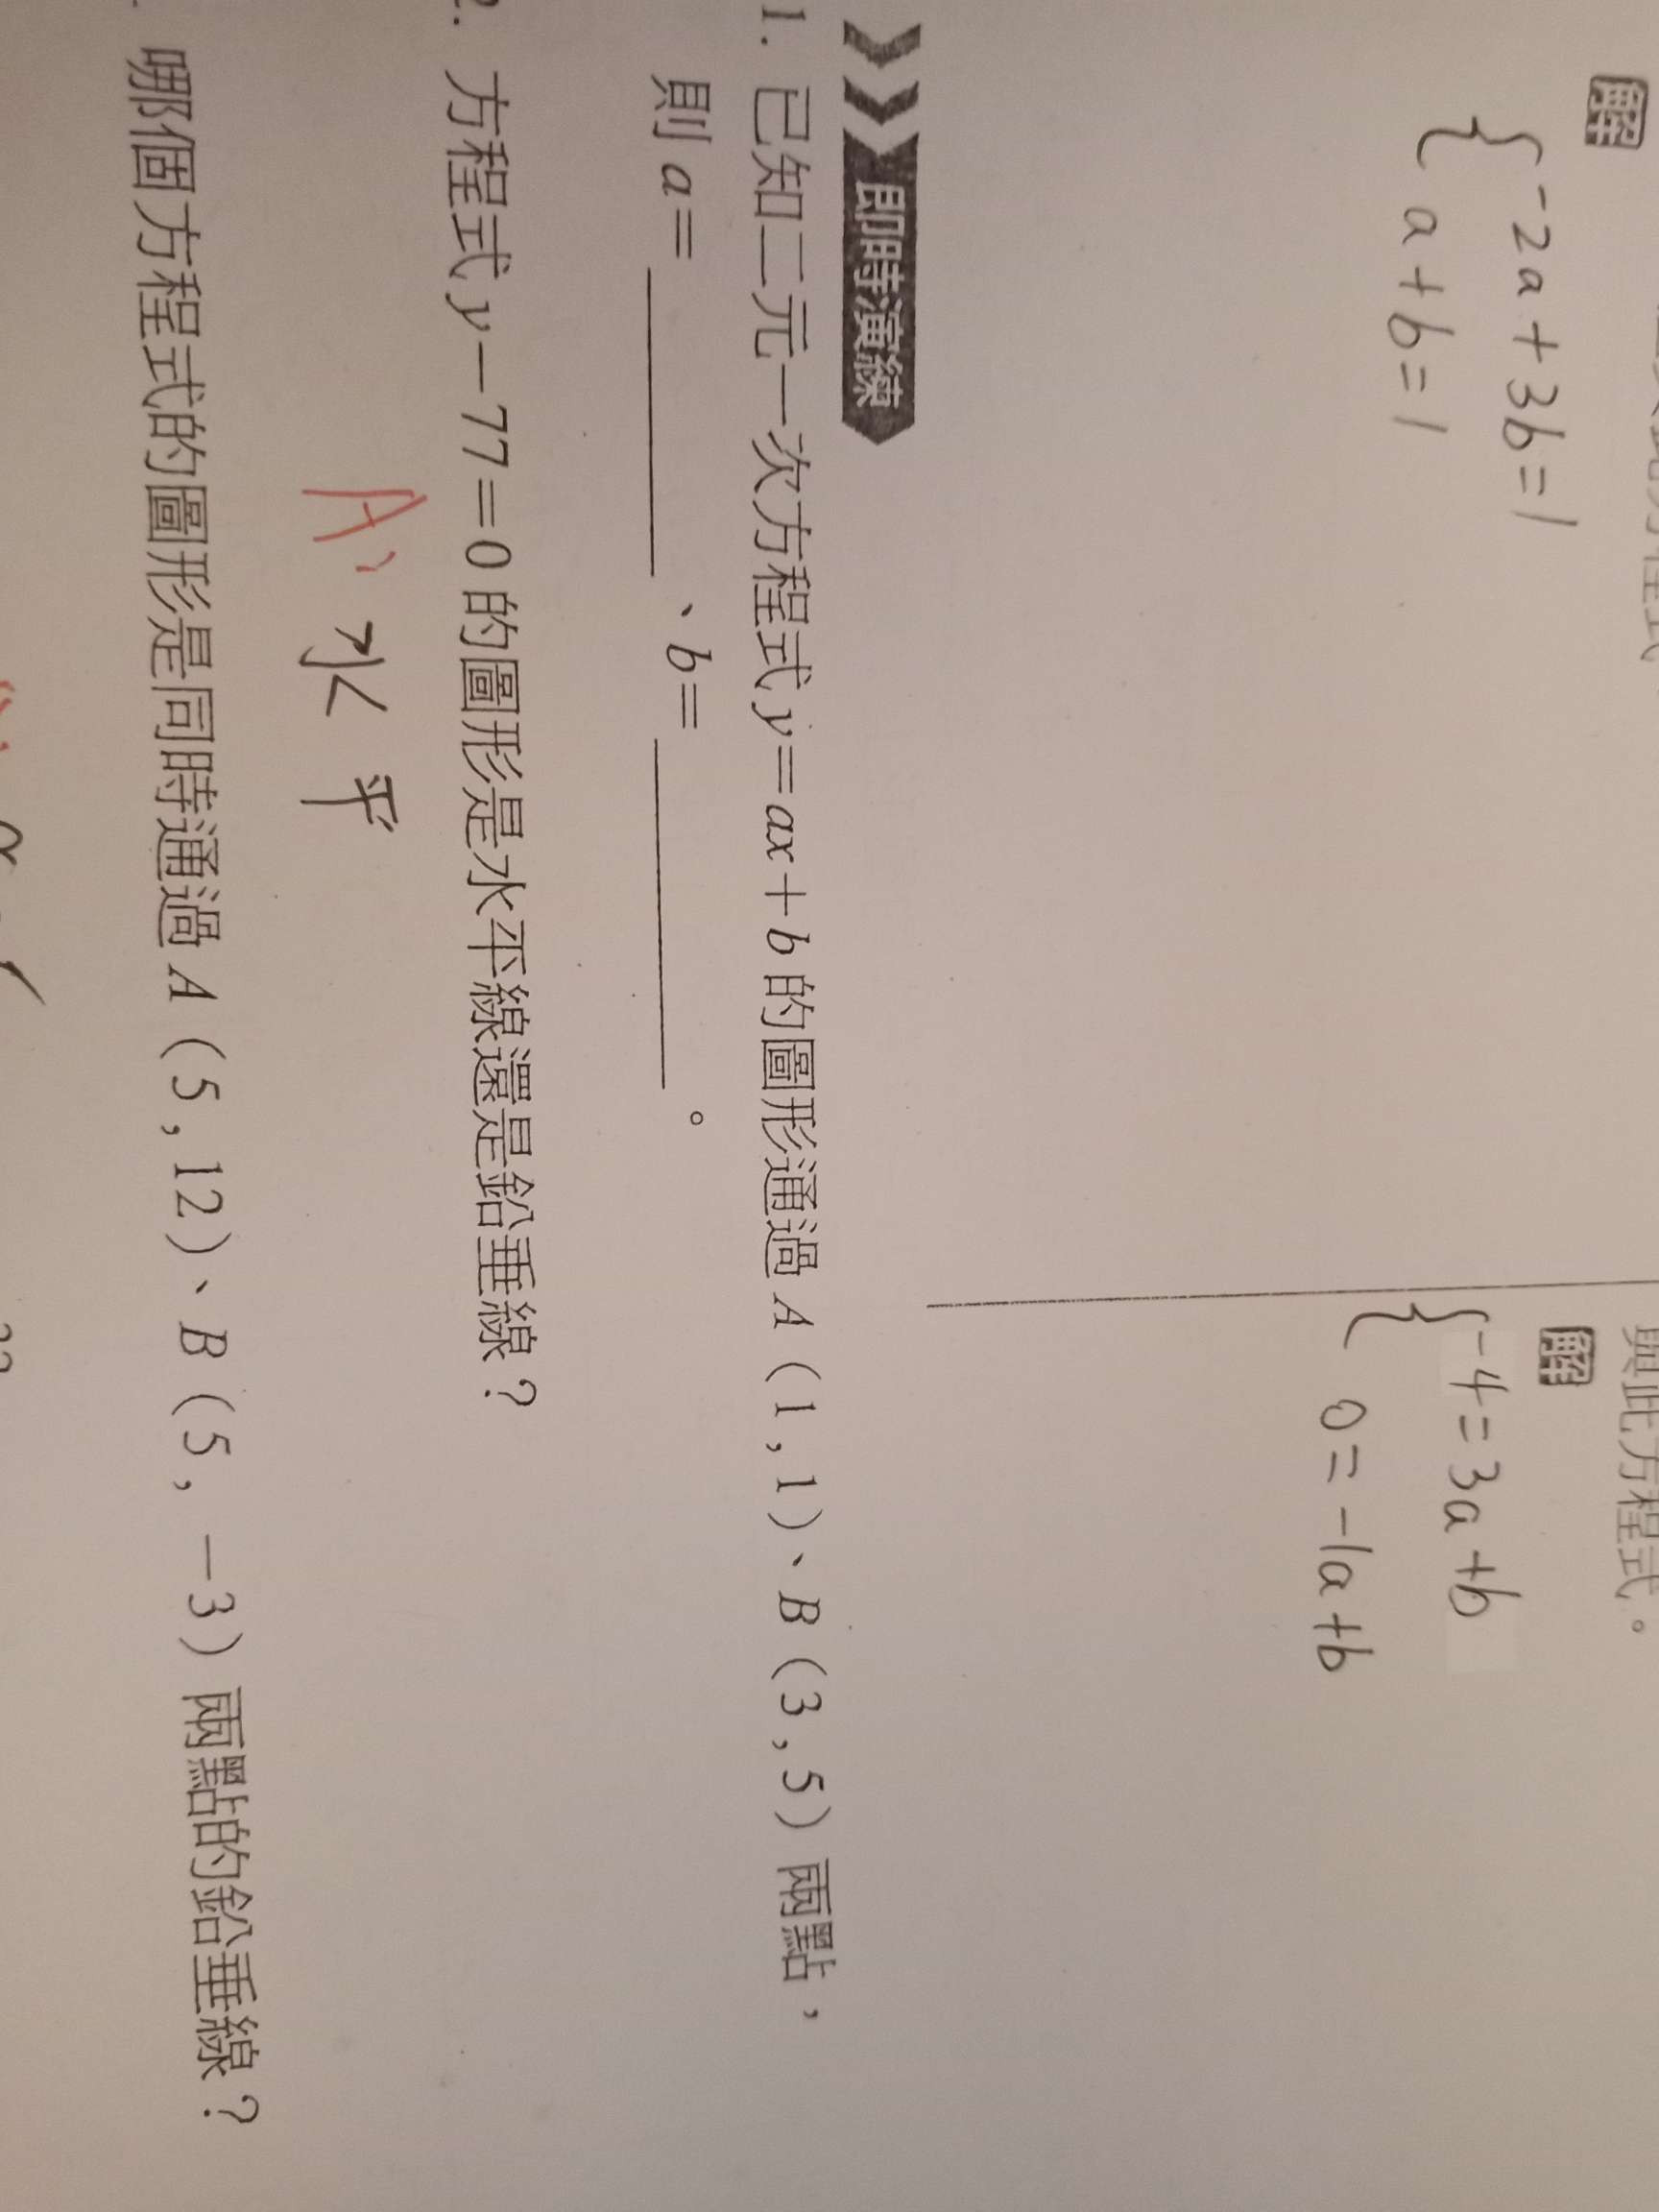 與此方程式。
解
解
-2a+3b=1
a+b=1
-4=3a+b
0=-1a+b
即時演練
1. 已知二元一次方程式 y=ax+b 的圖形通過 A(1,1)、B(3,5)兩點，
則 a=________、b=________。
2. 方程式 y-77=0 的圖形是水平線還是鉛垂線？
A: 水平
哪個方程式的圖形是同時通過 A(5,12)、B(5,-3)兩點的鉛垂線？